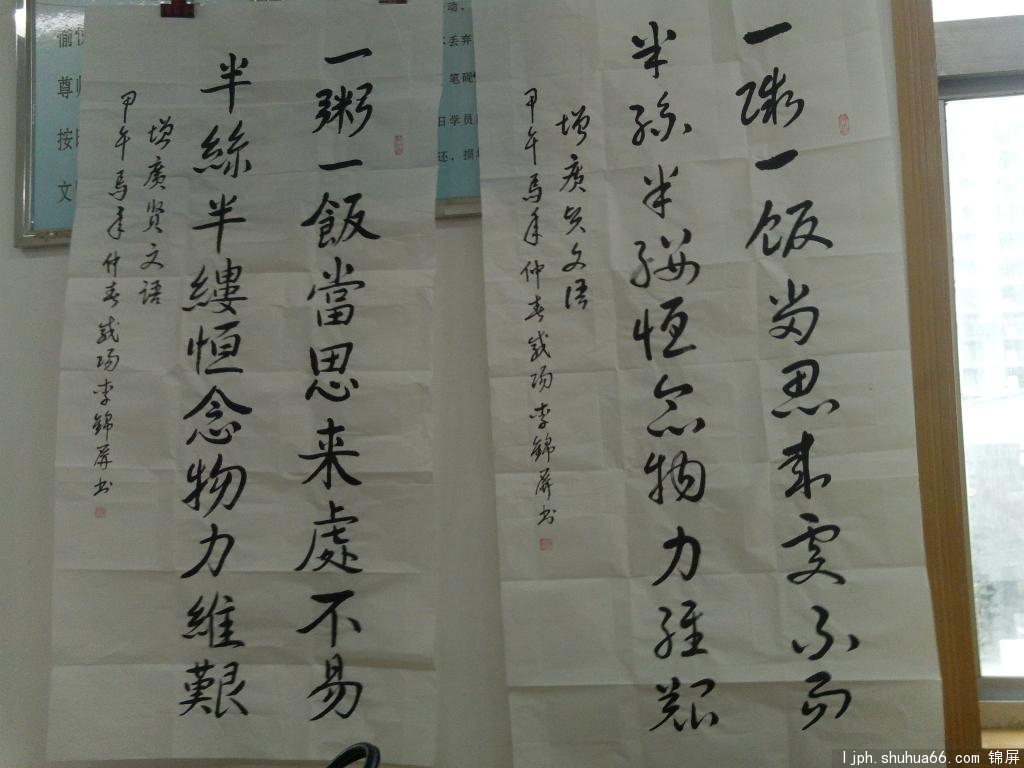 一粥一飯當思来處不易
半絲半縷恒念物力維艱
增廣贤文语
甲午馬年仲春
李錦屏书
一粥一飯当思来處不易
半絲半縷恒念物力維艱
增廣贤文语
甲午馬年仲春
李錦屏书
愉
尊师
按
文
动，
丢弃
笔砚
日学员
还，损
ljph.shuhua66.com 锦屏